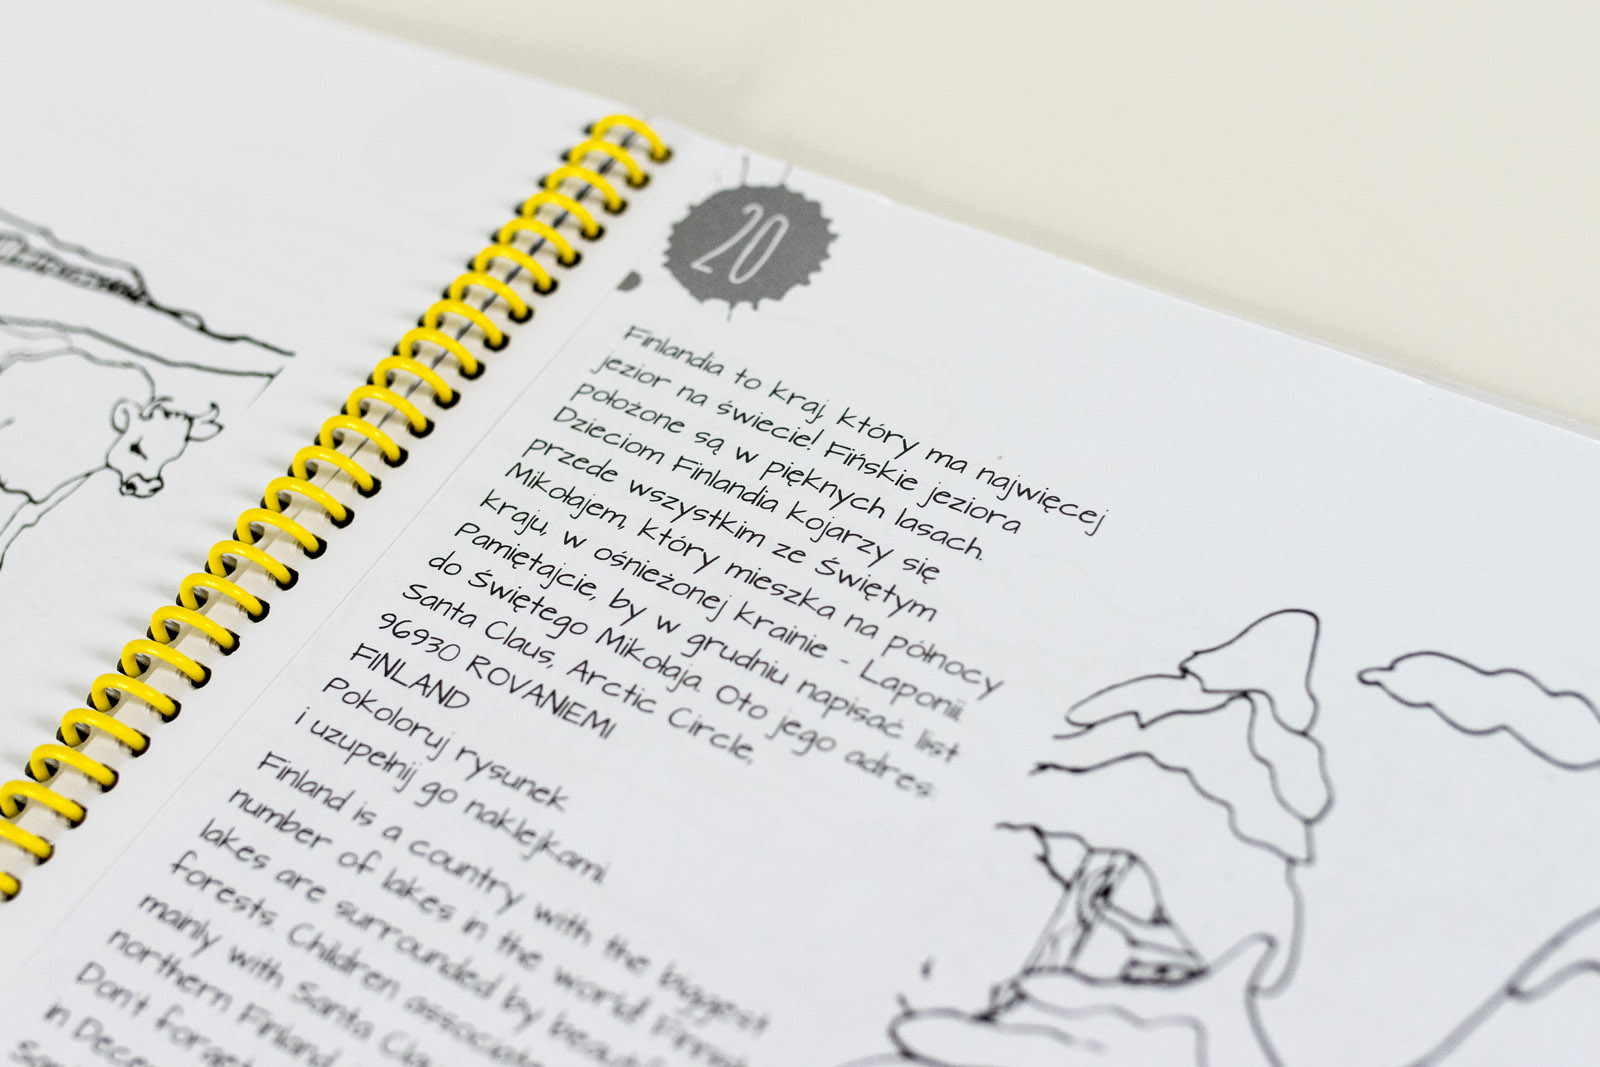 20
Finlandia to kraj, który ma najwięcej
jezior na świecie! Fińskie jeziora
położone są w pięknych lasach.
Dzieciom Finlandia kojarzy się
przede wszystkim ze Świętym
Mikołajem, który mieszka na północy
kraju, w ośnieżonej krainie - Laponii.
Pamiętajcie, by w grudniu napisać list
do Świętego Mikołaja. Oto jego adres:
Santa Claus, Arctic Circle,
96930 ROVANIEMI
FINLAND
Pokoloruj rysunek
i uzupełnij go naklejkami.
Finland is a country with the biggest
number of lakes in the world. Finnish
lakes are surrounded by
forests. Children associate
mainly with Santa
northern Finland,
Don't forget
in